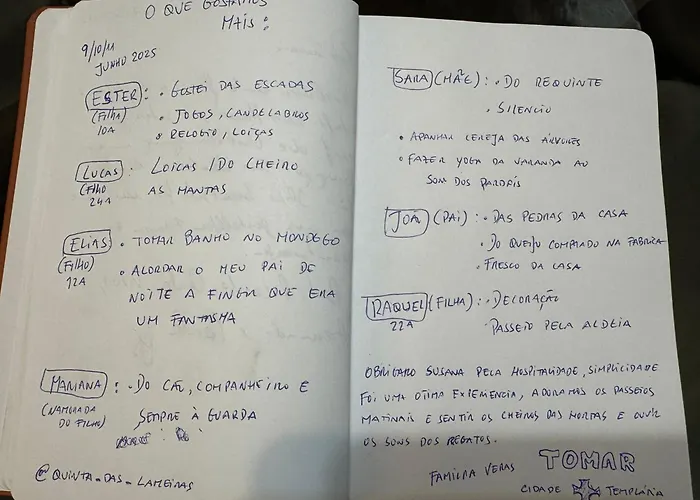 O QUE GOSTAMOS
MAIS:
9/10/11
JUNHO 2025
ESTER: • GOSTEI DAS ESCADAS
(Filha) • JOGOS, CANDELABROS
10A • RELOGIO, LOIÇAS
LUCAS: LOIÇAS / DO CHEIRO
(Filho AS MANTAS
24A
ELIAS • TOMAR BANHO NO MONDEGO
(Filho) • ALORDAR O MEU PAI DE
12A NOITE A FINGIR QUE ERA
UM FANTASMA
MARIANA: • DO CÃO, COMPANHEIRO E
(NAMORADA SEMPRE À GUARDA
DO FILHO)
@QUINTA-DAS-LAMEIRAS
SARA (MÃE): • DO REQUINTE
• SILENCIO
• APANHAR CEREJA DAS ÁRVORES
• FAZER YOGA DA VARANDA AO
SOM DOS PARDAIS
(PAI): • DAS PEDRAS DA CASA
• DO QUEIJO COMPRADO NA FABRICA
• FRESCO DA CASA
RAQUEL (FILHA): • DECORAÇÃO
22A PASSEIO PELA ALDEIA
OBRIGADO SUSANA PELA HOSPITALIDADE, SIMPLICIDADE
FOI UMA OTIMA EXPERIENCIA, ADORAMOS OS PASSEIOS
MATINAIS E SENTIR OS CHEIROS DAS HORTAS E OUVIR
OS SONS DOS REGATOS.
FAMILIA VERAS TOMAR
CIDADE TEMPLÁRIA